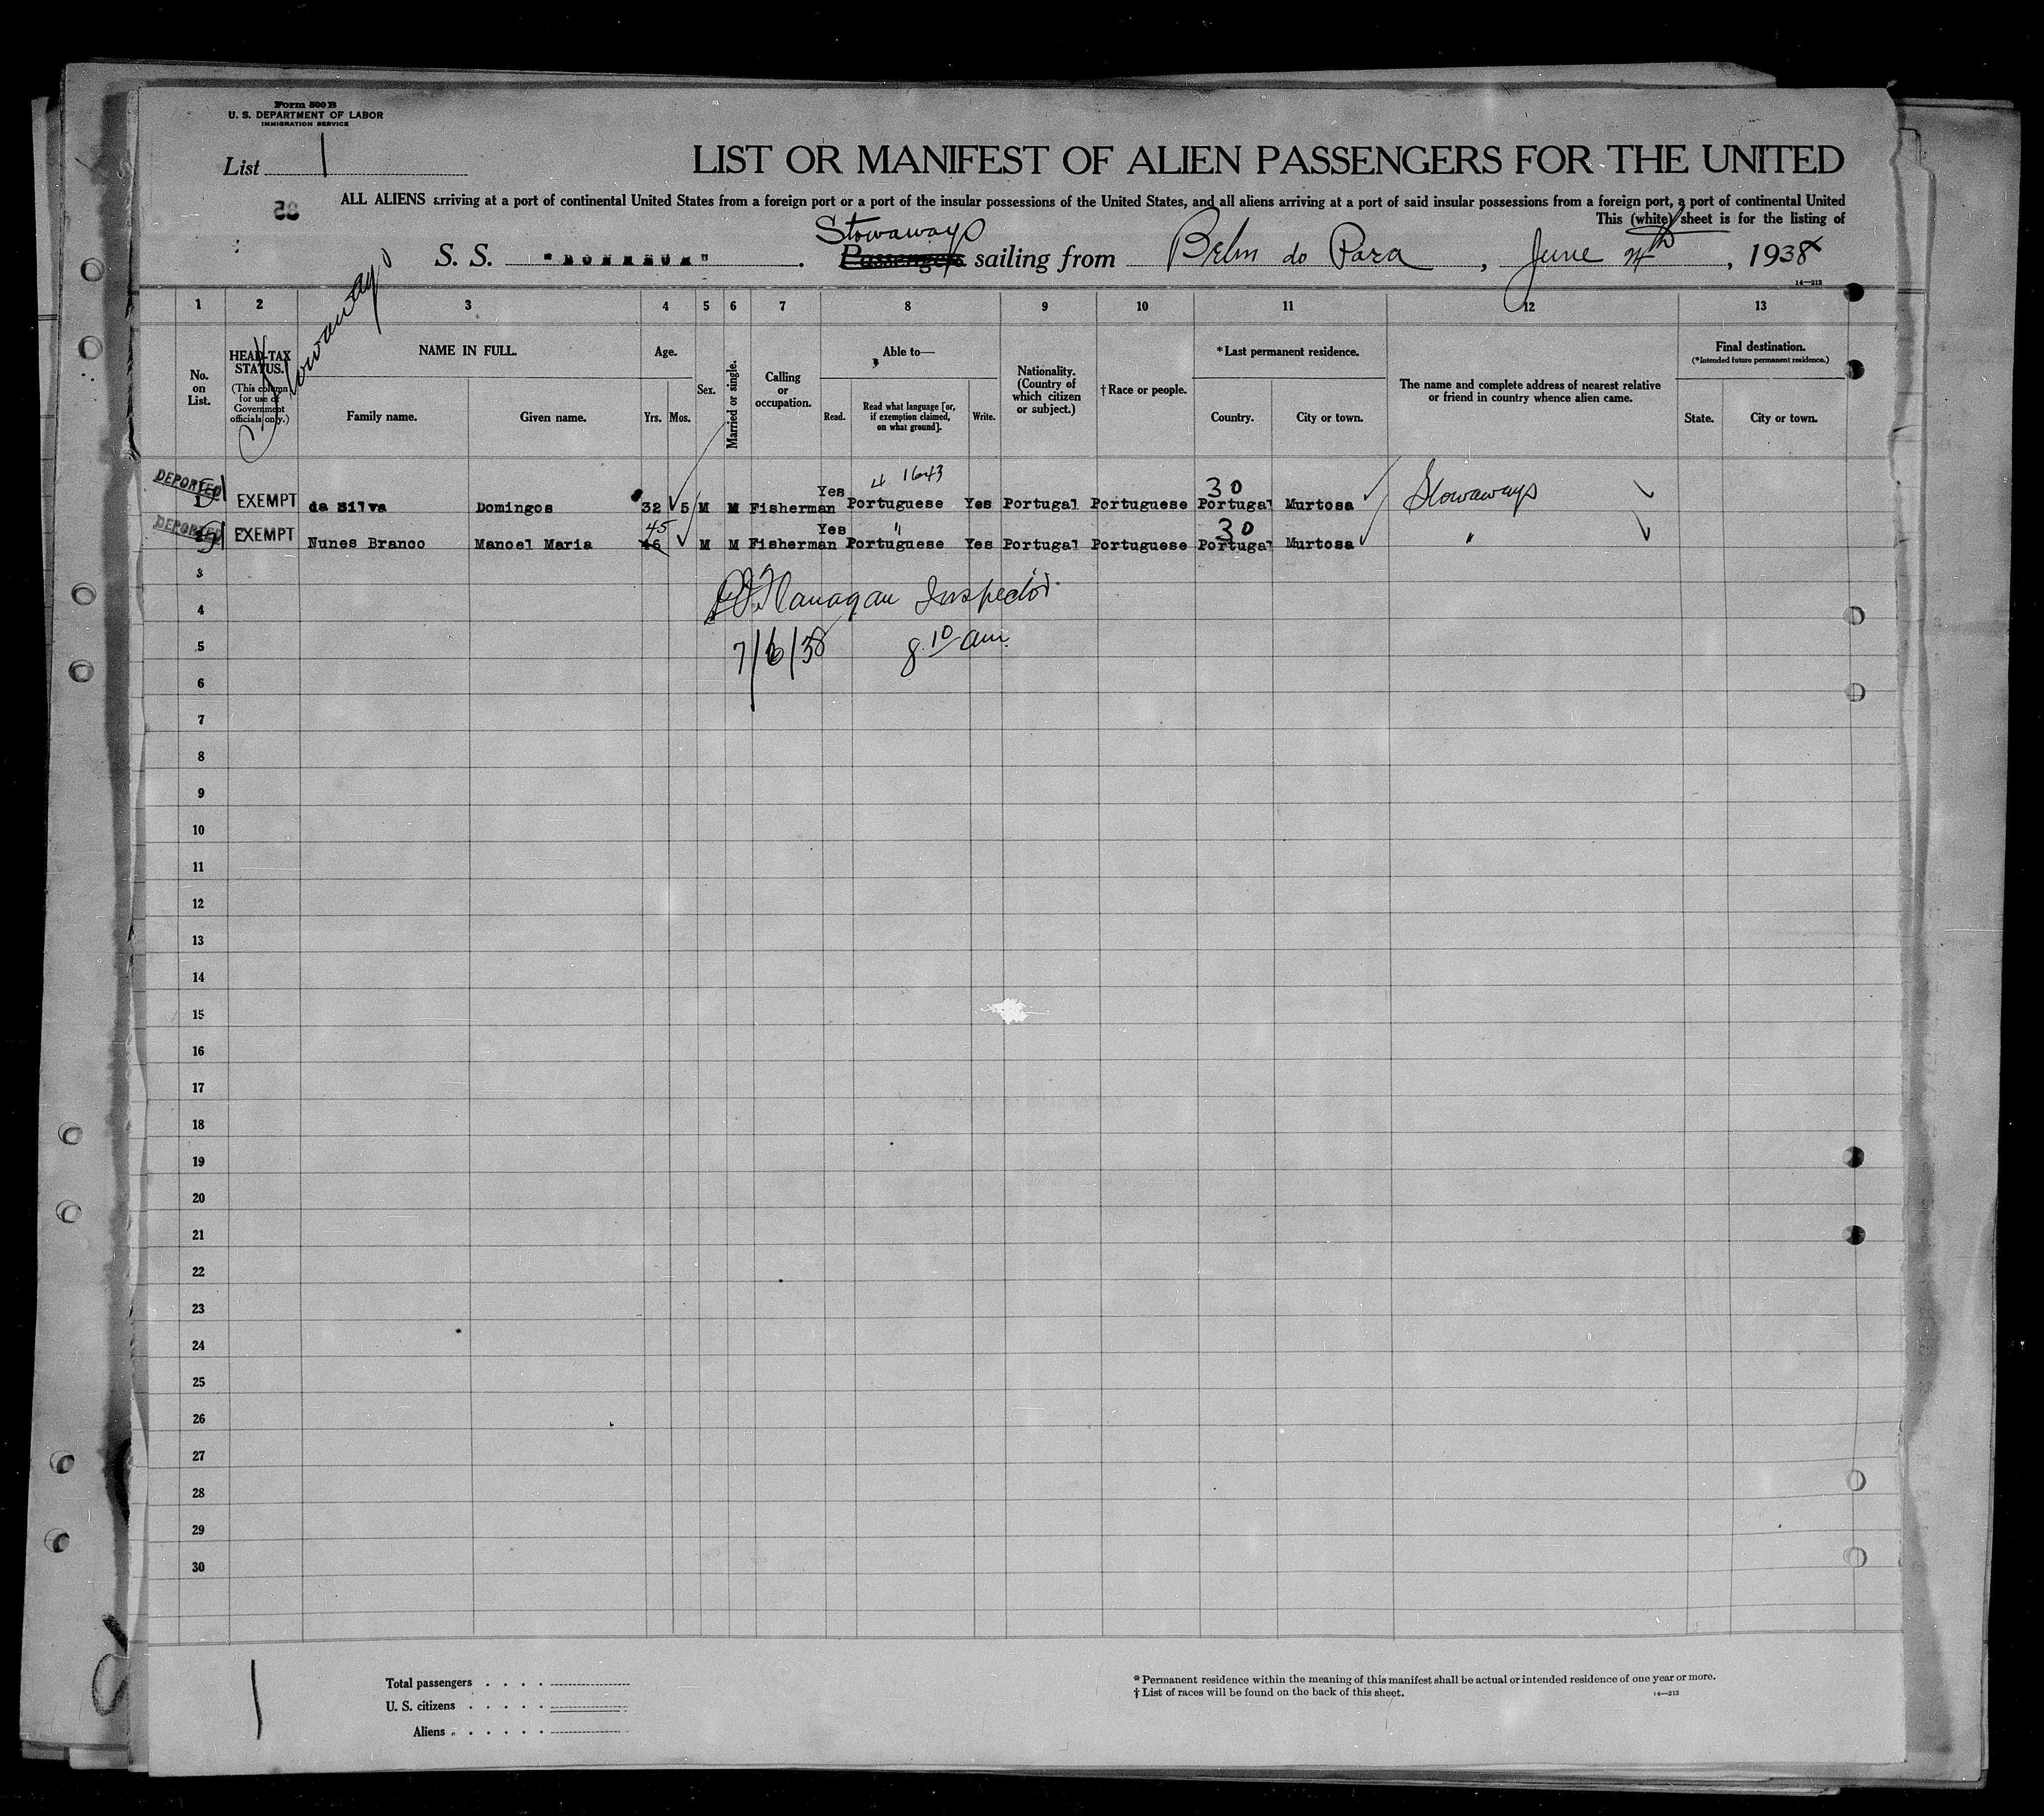 Form 500 B
U. S. DEPARTMENT OF LABOR
IMMIGRATION SERVICE
List 1
LIST OR MANIFEST OF ALIEN PASSENGERS FOR THE UNITED
85
ALL ALIENS arriving at a port of continental United States from a foreign port or a port of the insular possessions of the United States, and all aliens arriving at a port of said insular possessions from a foreign port, a port of continental United
This (white) sheet is for the listing of
Stowaways
S. S. Passengers sailing from Belm do Para, June 4th, 1938
14—213
Stowaways
1 2 3 4 5 6 7 8 9 10 11 12 13
HEAD-TAX STATUS. (This column for use of Government officials only.)
No. on List.
NAME IN FULL.
Family name. Given name.
Age.
Yrs. Mos.
Sex.
Married or single.
Calling or occupation.
Able to—
Read. Read what language [or, if exemption claimed, on what ground]. Write.
Nationality. (Country of which citizen or subject.)
† Race or people.
* Last permanent residence.
Country. City or town.
The name and complete address of nearest relative or friend in country whence alien came.
Final destination.
(*Intended future permanent residence.)
State. City or town.
4 1643
DEPORTED
1 EXEMPT da Silva Domingos 32 5 M M Fisherman Yes Portuguese Yes Portugal Portuguese 30 Portugal Murtosa Stowaways
DEPORTED
EXEMPT Nunes Branco Manoel Maria 46 45 M M Fisherman Yes Portuguese " Yes Portugal Portuguese 30 Portugal Murtosa "
3
4
Flanagan Inspector
5
7/6/38 8 10 am.
6
7
8
9
10
11
12
13
14
15
16
17
18
19
20
21
22
23
24
25
26
27
28
29
30
1
Total passengers
U. S. citizens
Aliens
* Permanent residence within the meaning of this manifest shall be actual or intended residence of one year or more.
† List of races will be found on the back of this sheet.
14—213